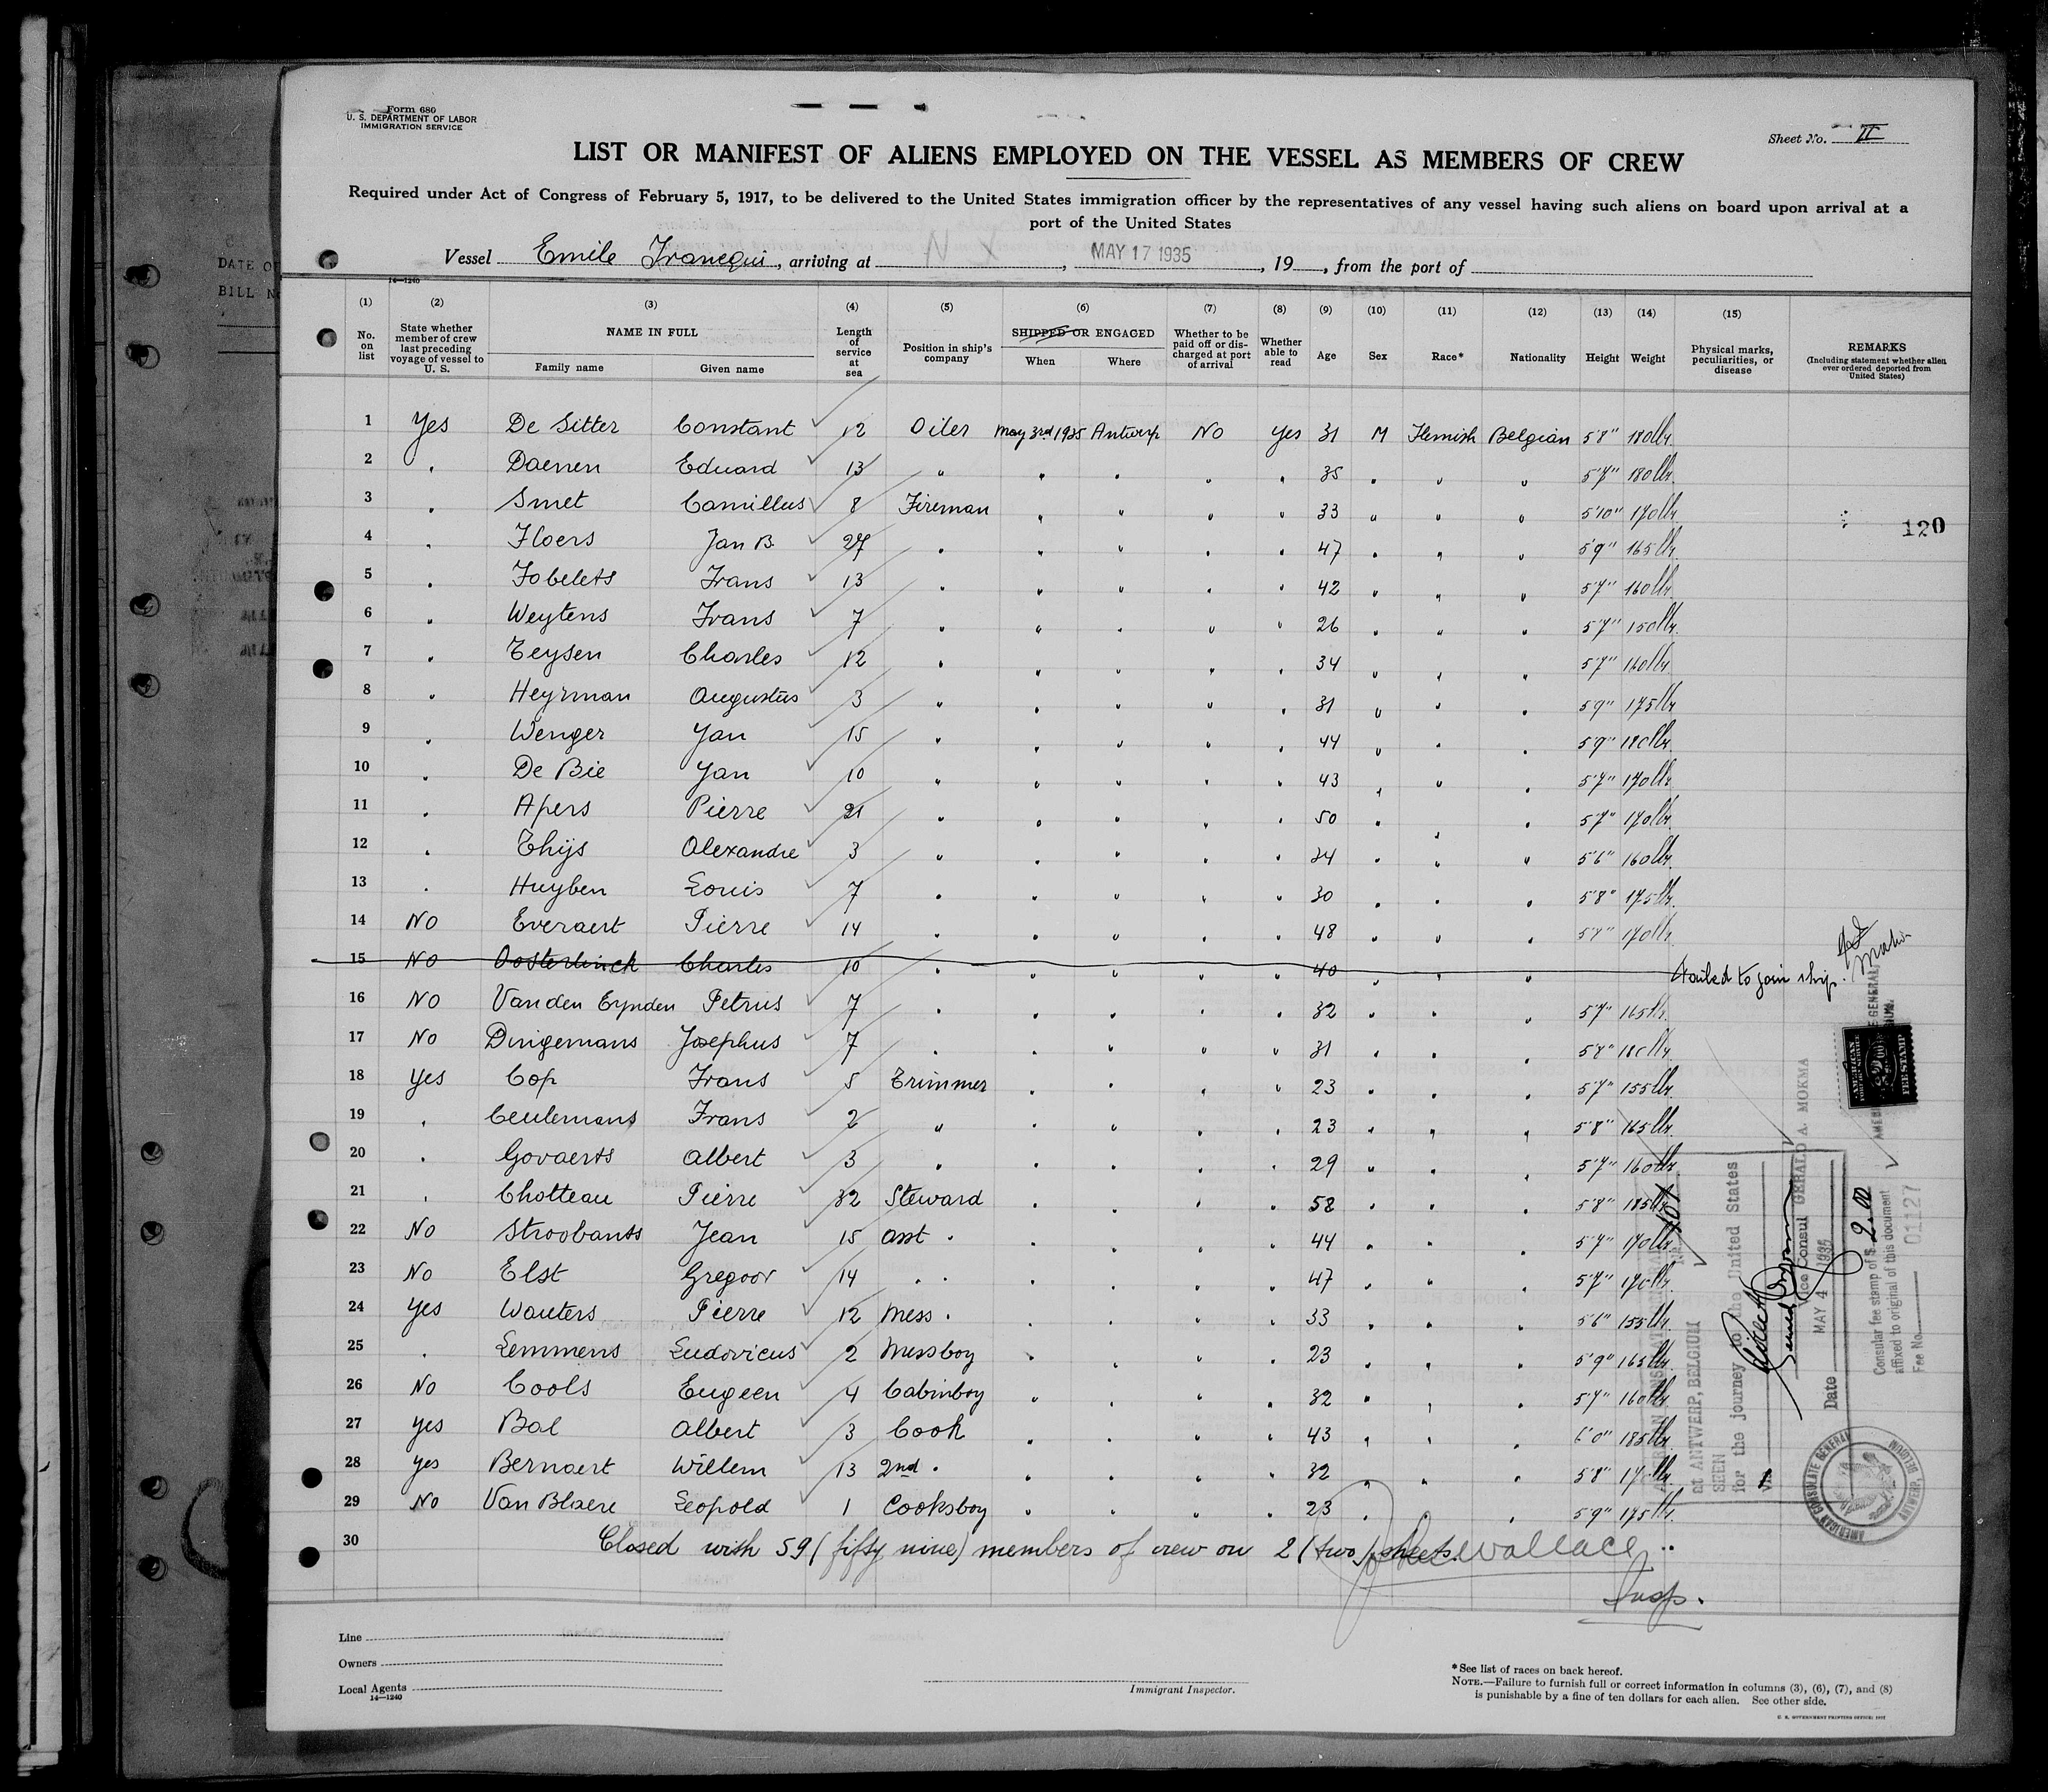 Form 680
U. S. DEPARTMENT OF LABOR
IMMIGRATION SERVICE
Sheet No. II
LIST OR MANIFEST OF ALIENS EMPLOYED ON THE VESSEL AS MEMBERS OF CREW
Required under Act of Congress of February 5, 1917, to be delivered to the United States immigration officer by the representatives of any vessel having such aliens on board upon arrival at a
port of the United States
Vessel Emile Francqui, arriving at N Y, MAY 17 1935, 19, from the port of
14—1240
(1) (2) (3) (4) (5) (6) (7) (8) (9) (10) (11) (12) (13) (14) (15)
No. on list
State whether member of crew last preceding voyage of vessel to U. S.
NAME IN FULL
Family name Given name
Length of service at sea
Position in ship's company
SHIPPED OR ENGAGED
When Where
Whether to be paid off or discharged at port of arrival
Whether able to read
Age Sex Race* Nationality Height Weight
Physical marks, peculiarities, or disease
REMARKS
(Including statement whether alien ever ordered deported from United States)
1 Yes De Sitter Constant 12 Oiler May 3rd 1935 Antwerp No Yes 31 M Flemish Belgian 5'8" 180lbs.
2 " Daenen Eduard 13 " " " " " 35 " " " 5'7" 180lbs.
3 " Smet Camillus 8 Fireman " " " " 33 " " " 5'10" 170lbs.
120
4 " Floers Jan B. 27 " " " " " 47 " " " 5'9" 165lbs.
5 " Fobelets Frans 13 " " " " " 42 " " " 5'7" 160lbs.
6 " Weytens Frans 7 " " " " " 26 " " " 5'7" 150lbs.
7 " Teysen Charles 12 " " " " " 34 " " " 5'7" 160lbs.
8 " Heyrman Augustus 3 " " " " " 31 " " " 5'9" 175lbs.
9 " Wenger Jan 15 " " " " " 44 " " " 5'9" 180lbs.
10 " De Bie Jan 10 " " " " " 43 " " " 5'7" 170lbs.
11 " Apers Pierre 21 " " " " " 50 " " " 5'7" 170lbs.
12 " Thijs Alexandre 3 " " " " " 34 " " " 5'6" 160lbs.
13 " Huyben Louis 7 " " " " " 30 " " " 5'8" 175lbs.
14 No Everaert Pierre 14 " " " " " 48 " " " 5'7" 170lbs.
15 No Oosterlinck Charles 10 " " " " " 40 " " " Failed to join ship.
16 No Van den Eynden Petrus 7 " " " " " 32 " " " 5'7" 165lbs.
17 No Dingemans Josephus 7 " " " " " 31 " " " 5'8" 180lbs.
18 Yes Cop Frans 5 Trimmer " " " " 23 " " " 5'7" 155lbs.
19 " Ceulemans Frans 2 " " " " " 23 " " " 5'8" 165lbs.
20 " Govaerts Albert 3 " " " " " 29 " " " 5'7" 160lbs.
21 " Chotteau Pierre 32 Steward " " " " 58 " " " 5'8" 185lbs.
22 No Stroobants Jean 15 asst " " " " " 44 " " " 5'7" 170lbs.
23 No Elst Gregoor 14 " " " " " " 47 " " " 5'7" 170lbs.
24 Yes Wauters Pierre 12 Mess " " " " " 33 " " " 5'6" 155lbs.
25 " Lemmens Ludovicus 2 Messboy " " " " 23 " " " 5'9" 165lbs.
26 No Cools Eugeen 4 Cabinboy " " " " 32 " " " 5'7" 160lbs.
27 Yes Bal Albert 3 Cook " " " " 43 " " " 6'0" 185lbs.
28 Yes Bernaert Willem 13 2nd " " " " " 32 " " " 5'8" 170lbs.
29 No Van Blaere Leopold 1 Cooksboy " " " " 23 " " " 5'9" 175lbs.
30 Closed with 59 (fifty nine) members of crew on 2 (two) sheets.
Wallace
Insp.
at ANTWERP, BELGIUM
SEEN
for the journey to the United States
Vice Consul GERALD A. MOKMA
Date MAY 4 1935
Consular fee stamp of $ 2.00
affixed to original of this document
Fee No. 01127
AMERICAN
FOREIGN SERVICE
FEE STAMP
AMERICAN CONSULATE GENERAL
ANTWERP, BELGIUM
Line
Owners
Local Agents
14—1240
Immigrant Inspector.
*See list of races on back hereof.
NOTE.—Failure to furnish full or correct information in columns (3), (6), (7), and (8)
is punishable by a fine of ten dollars for each alien. See other side.
U. S. GOVERNMENT PRINTING OFFICE: 1927
DATE OF
BILL No